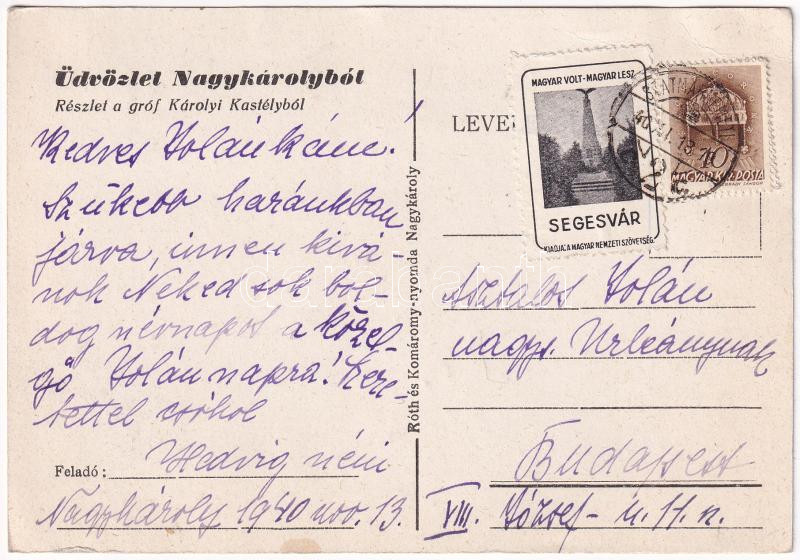 Üdvözlet Nagykárolyból
Részlet a gróf Károlyi Kastélyból
Kedves Jolánkám!
Szűkebb hazánkban
járva, innen kivá-
nok Neked sok bol-
dog névnapot a közel-
gő Jolán napra! Szere-
tettel csókol
Hedvig néni
Feladó:
Nagykároly 1940 nov. 13.
Róth és Komáromy-nyomda Nagykároly
LEVE
MAGYAR VOLT-MAGYAR LESZ
SEGESVÁR
KIADJA A MAGYAR NEMZETI SZÖVETSÉG.
10
MAGYAR KIR. POSTA
Asztalos Jolán
nagys. Urleánynak
Budapest
VIII. József- u. 11. n.